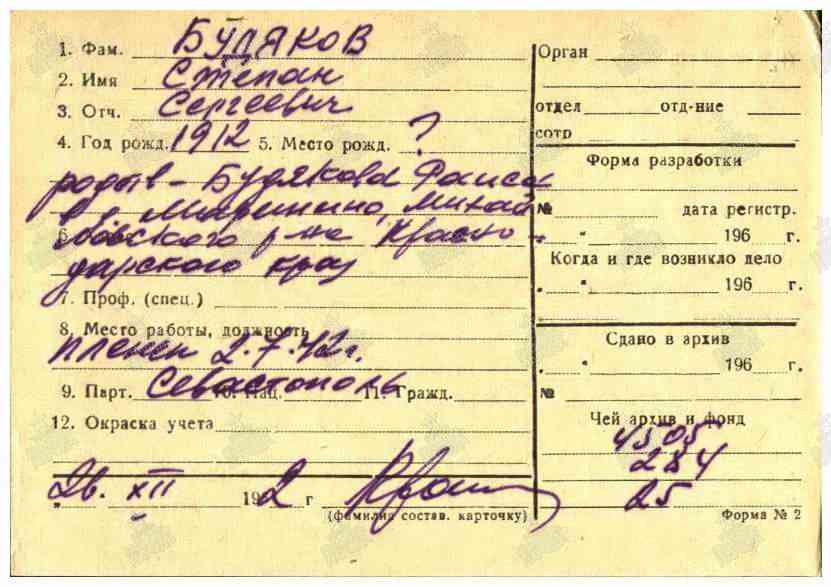 1. Фам. БУДЯКОВ
2. Имя Степан
3. Отч. Сергеевич
4. Год рожд. 1912 5. Место рожд. ?
родств - Будякова Раиса
Марьино,
ского р-на Красно-
дарского края
7. Проф. (спец.)
8. Место работы, должность
пленен 2.7.42 г.
9. Парт. Севастополь 10. Нац. 11. Гражд.
12. Окраска учета
„26. XII 1962 г
(фамилия состав. карточку)
Орган
отдел отд-ние
сотр
Форма разработки
№ дата регистр.
„ “ 196 г.
Когда и где возникло дело
„ “ 196 г.
Сдано в архив
„ “ 196 г.
№
Чей архив и фонд
4505
254
25
Форма № 2